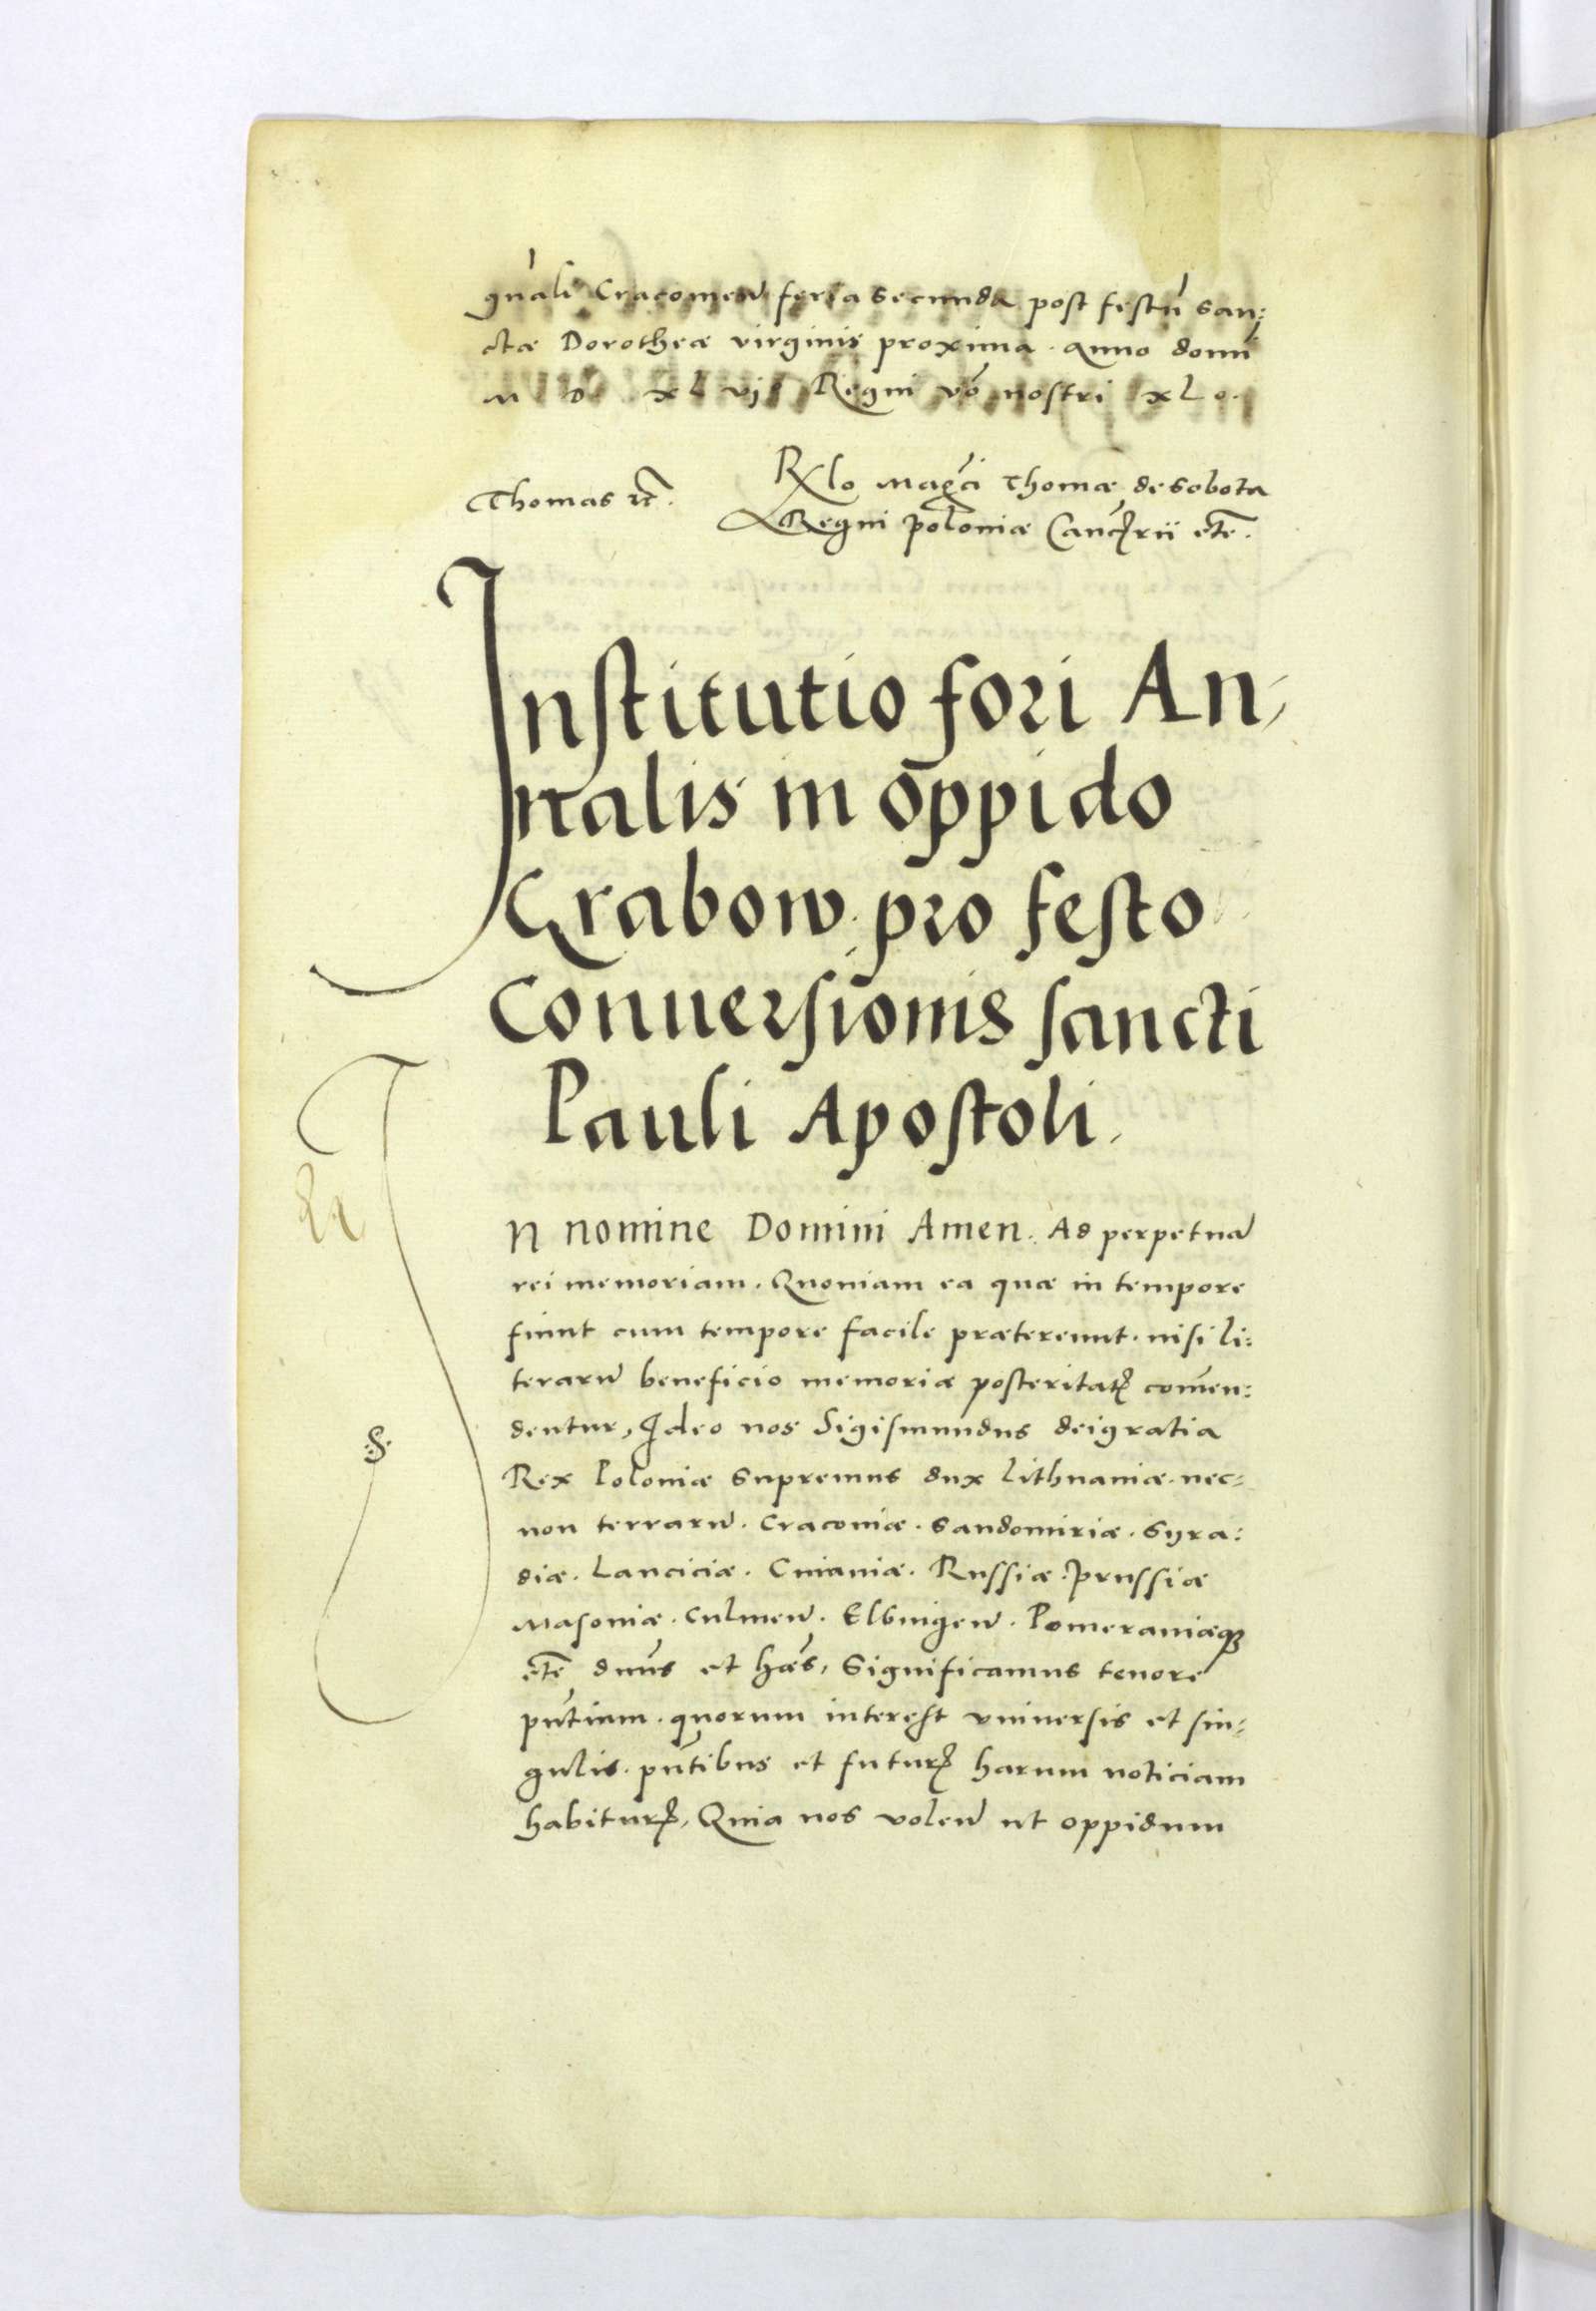 gnãli Cracouieñ feria secunda post festũ san:
ctæ Dorotheæ virginis proxima. anno domi
M D xlvij Regni vő nostri xl o.
Thomas
Rxlo Magci Thomæ de Sobota
Regni Poloniæ Cancrii etc̃.
Institutio fori An,
nalis in oppido
Grabow. pro festo
Conuersionis sancti
Pauli Apostoli.
In nomine Domini Amen. Ad perpetuã
rei memoriam. Quoniam ea quæ in tempore
fiunt cum tempore facile prætereunt. nisi li:
terarũ beneficio memoriæ posteritatꝭ com̃en:
dentur, Ideo nos Sigismundus dei gratia
Rex Poloniæ Supremus dux Lithuaniæ. nec:
non terrarũ. Cracouiæ. Sandomiriæ. Syra:
diæ. Lanciciæ. Cuiauiæ. Russiæ. Prussiæ
§.
Masoniæ. Culmeñ. Elbingeñ. Pomeraniæqꝫ
etc̃ dñus et hæs, Significamus tenore
pñtium. quorum interest vniuersis et sin:
gulis. pñtibus et futurꝭ harum noticiam
habiturꝭ, Quia nos voleñ ut oppidum